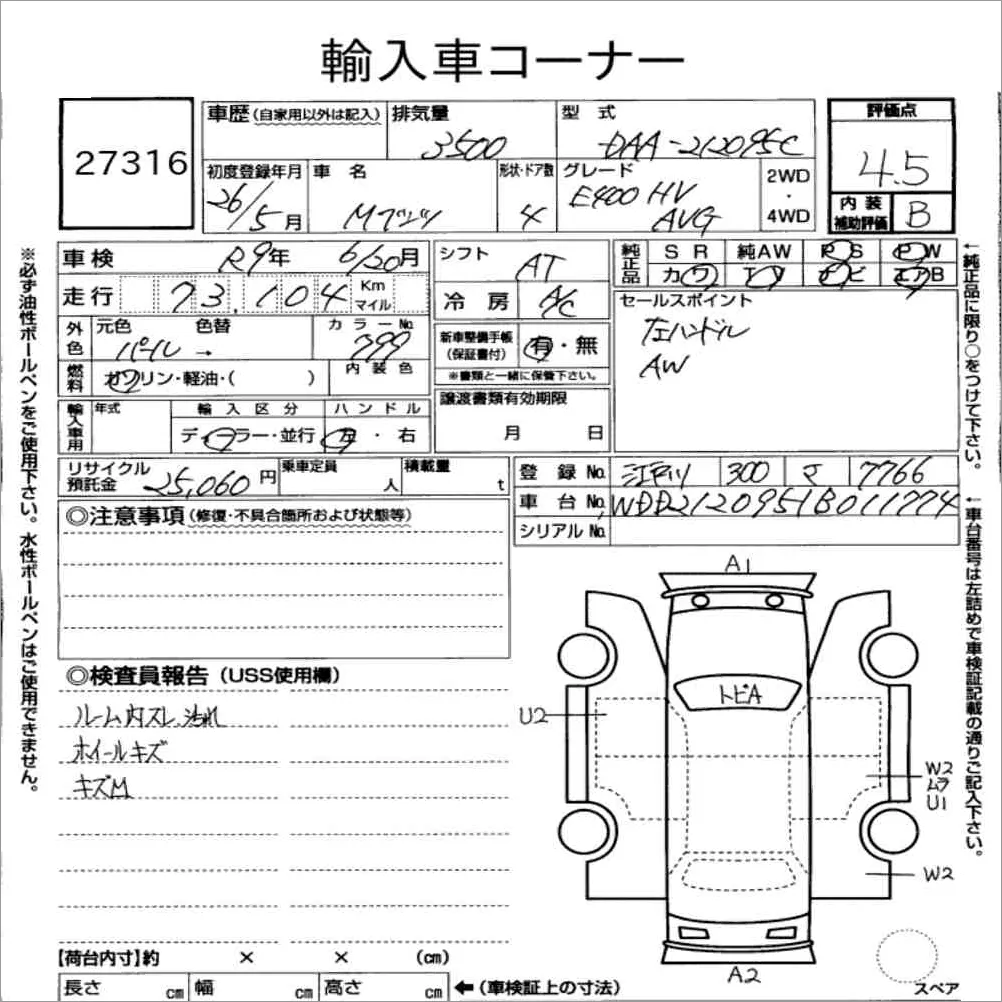 輸入車コーナー
27316
車歴(自家用以外は記入)
排気量
3500
型 式
DAA-212095C
評価点
4.5
初度登録年月
26/5月
車 名
Mベンツ
形状・ドア数
4
グレード
E400 HV
AVG
2WD
・
4WD
内 装
補助評価
B
車検
R9年 6/20月
シフト
AT
純正品
S R 純AW P S P W
カ ワ T V ナ ビ エアB
走行
73,104
Km
マイル
冷 房
A/C
セールスポイント
左ハンドル
AW
外色
元色 色替
パール →
カラーNo.
799
新車整備手帳
(保証書付)
有・無
※書類と一緒に保管下さい。
燃料
ガソリン・軽油・( )
内 装 色
譲渡書類有効期限
月 日
輸入車用
年式
輸 入 区 分
ハ ン ド ル
ディーラー・並行
左 ・ 右
リサイクル
預託金
25,060円
乗車定員
人
積載量
t
登 録 No.
江戸川 300 マ 7766
車 台 No.
WDD2120951B011774
シリアル No.
◎注意事項(修復・不具合箇所および状態等)
◎検査員報告(USS使用欄)
ルーム内スレ、汚れ
ホイールキズ
キズM
A1
トビA
U2
W2
ムラ
U1
W2
A2
スペア
【荷台内寸】約 × × (cm)
長さ cm
幅 cm
高さ cm
←(車検証上の寸法)
※必ず油性ボールペンをご使用下さい。水性ボールペンはご使用できません。
←純正品に限り○をつけて下さい。
←車台番号は左詰めで車検証記載の通りご記入下さい。